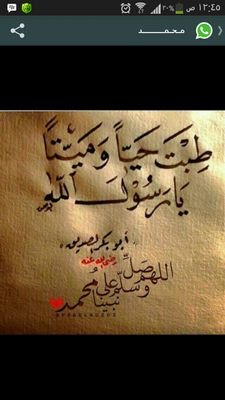 ١٢:٤٥ ص
٢٠%
محمـــد
طِبْتَ حَيّاً وَمَيْتاً
يَا رَسُوْلَ اللهِ
أبو بكر الصديق
رضي الله عنه
اللهم صَلِّ
وسلم على
نبينا محمد